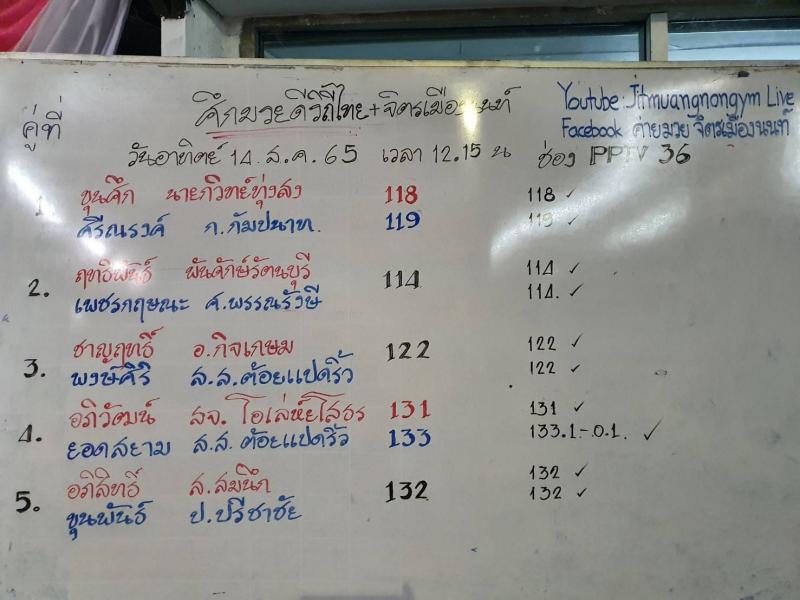 ศึกมวยดีวิถีไทย+จิตรเมืองนนท์
Youtube : Jitmuangnongym Live
Facebook ค่ายมวย จิตรเมืองนนท์
คู่ที่
วันอาทิตย์ 14 ส.ค. 65 เวลา 12.15 น ช่อง PPTV 36
1. ขุนศึก นายกวิทย์ทุ่งสง 118 118 ✓
ศรีณรงค์ ก.กัมปนาท. 119 119 ✓
2. ฤทธิพันธ์ พันจักษ์รัตนบุรี 114 114 ✓
เพชรกฤษณะ ศ.พรรณรังษี 114. ✓
3. ชาญฤทธิ์ อ.กิจเกษม 122 122 ✓
พงษ์ศิริ ส.ส.ต้อยแปดริ้ว 122 ✓
4. อภิวัฒน์ สจ.โอเล่ห์ยโสธร 131 131 ✓
ยอดสยาม ส.ส.ต้อยแปดริ้ว 133 133.1-0.1. ✓
5. อภิสิทธิ์ ส.สมนึก 132 132 ✓
ขุนพันธ์ ป.ปรีชาชัย 132 ✓